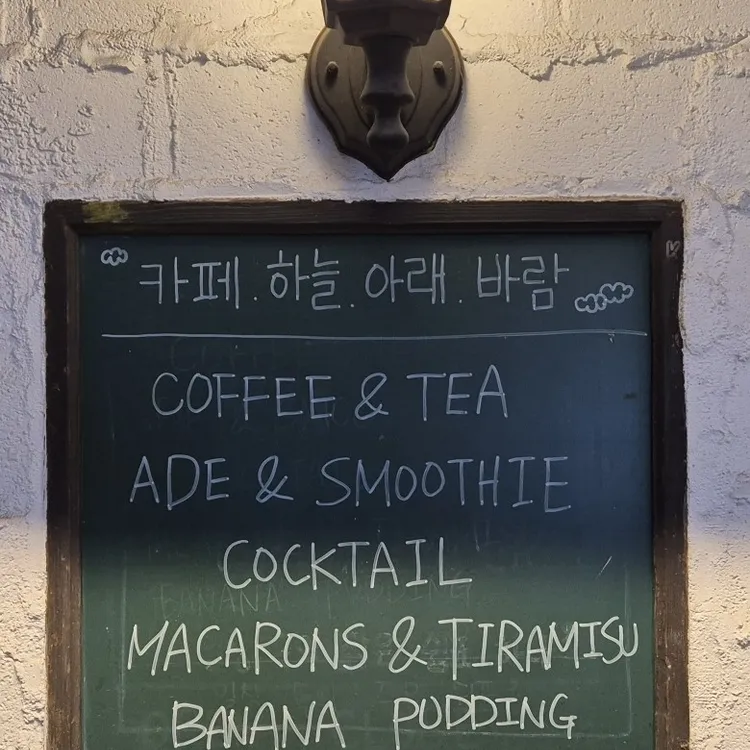 카페.하늘.아래.바람
COFFEE & TEA
ADE & SMOOTHIE
COCKTAIL
MACARONS & TIRAMISU
BANANA PUDDING